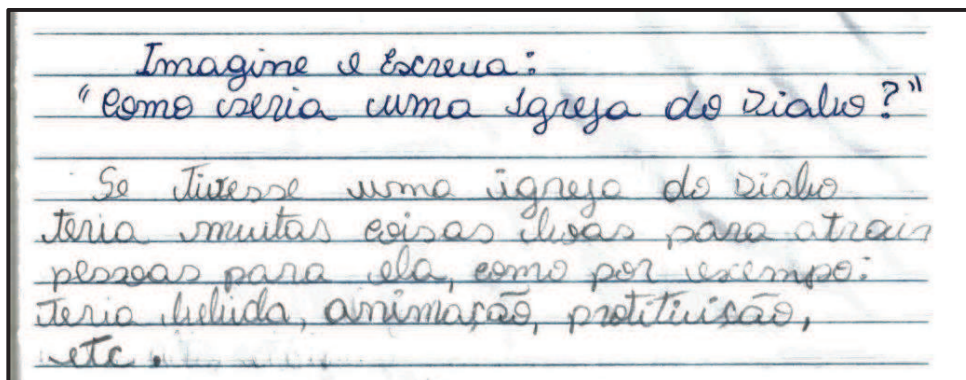 Imagine e Escreva:
"Como seria uma Igreja do Diabo?"
Se tivesse uma igreja do Diabo
teria muitas coisas boas para atrair
pessoas para ela, como por exempo:
teria bebida, animação, protituisão,
etc.